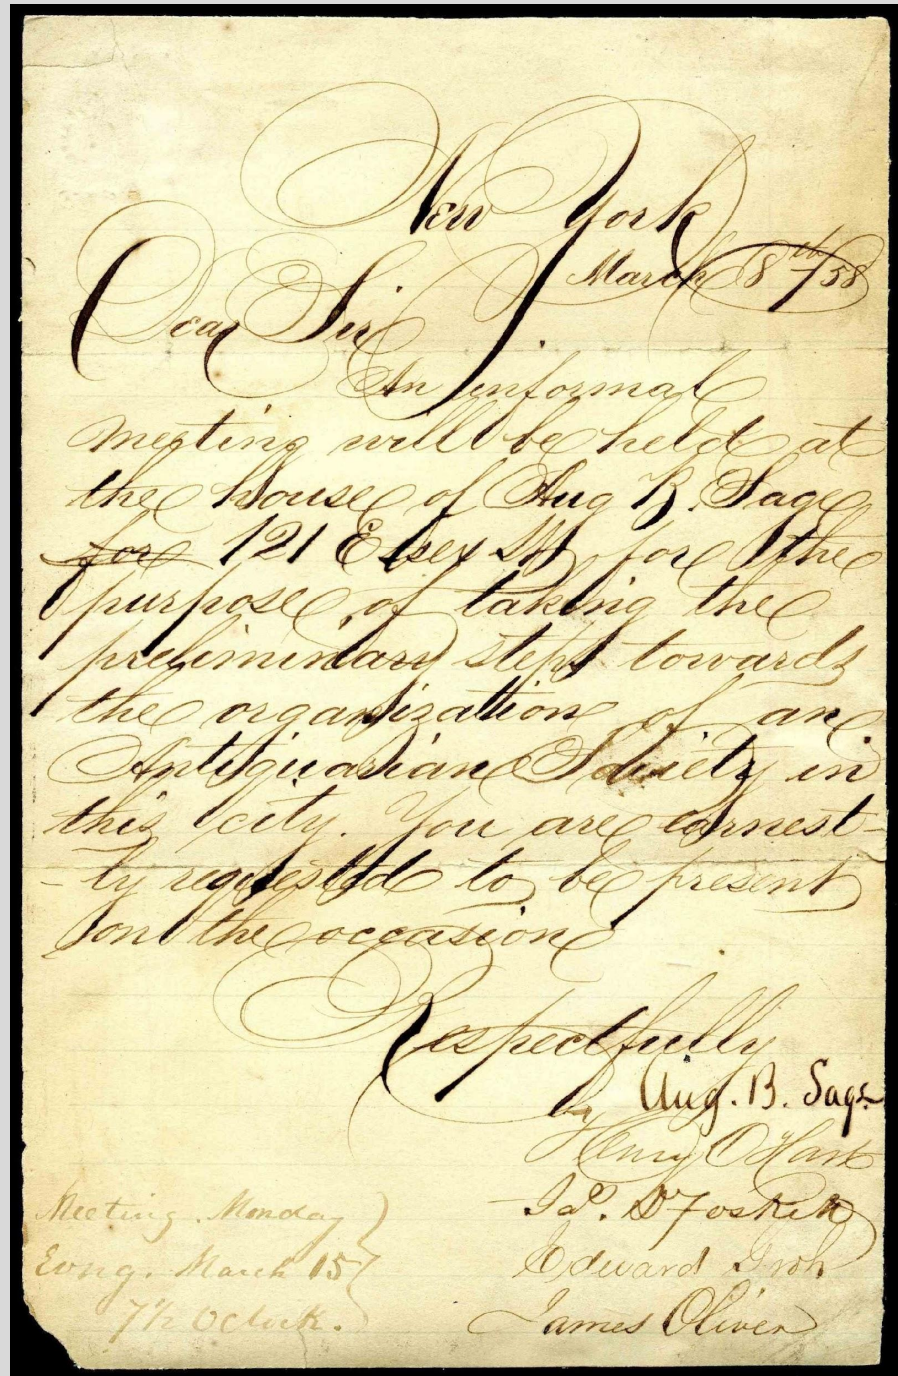 New York
March 8th/58
Dear Sir
An informal
meeting will be held at
the house of Aug B. Sage
for 121 Essex St, for the
purpose, of taking the
preliminary steps towards
the organization of an
Antiquarian Society in
this city. You are earnest-
-ly requested to be present
on the occasion
Respectfully
by Aug. B. Sage
Henry
Foskett
Edward Groh
James Oliver
Meeting Monday
Evng. March 15
7½ OClock.